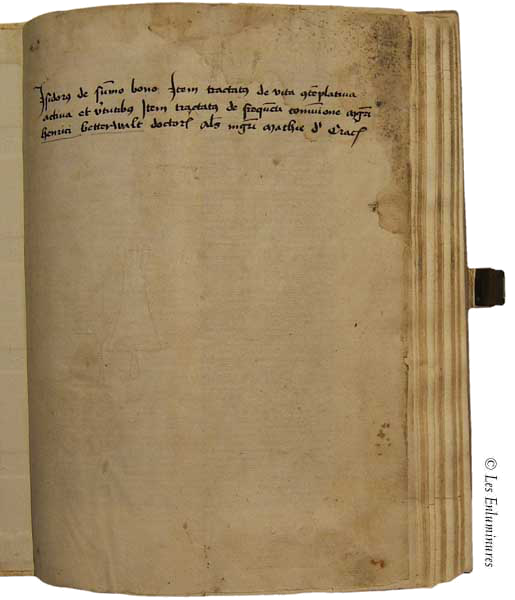 Isidorus de sumo bono Item tractatus de vita contemplativa
activa et virtutibus Item tractatus de frequenti comunione magistri
henrici doctoris als mgri Mathie de Crac
© Les Enluminures